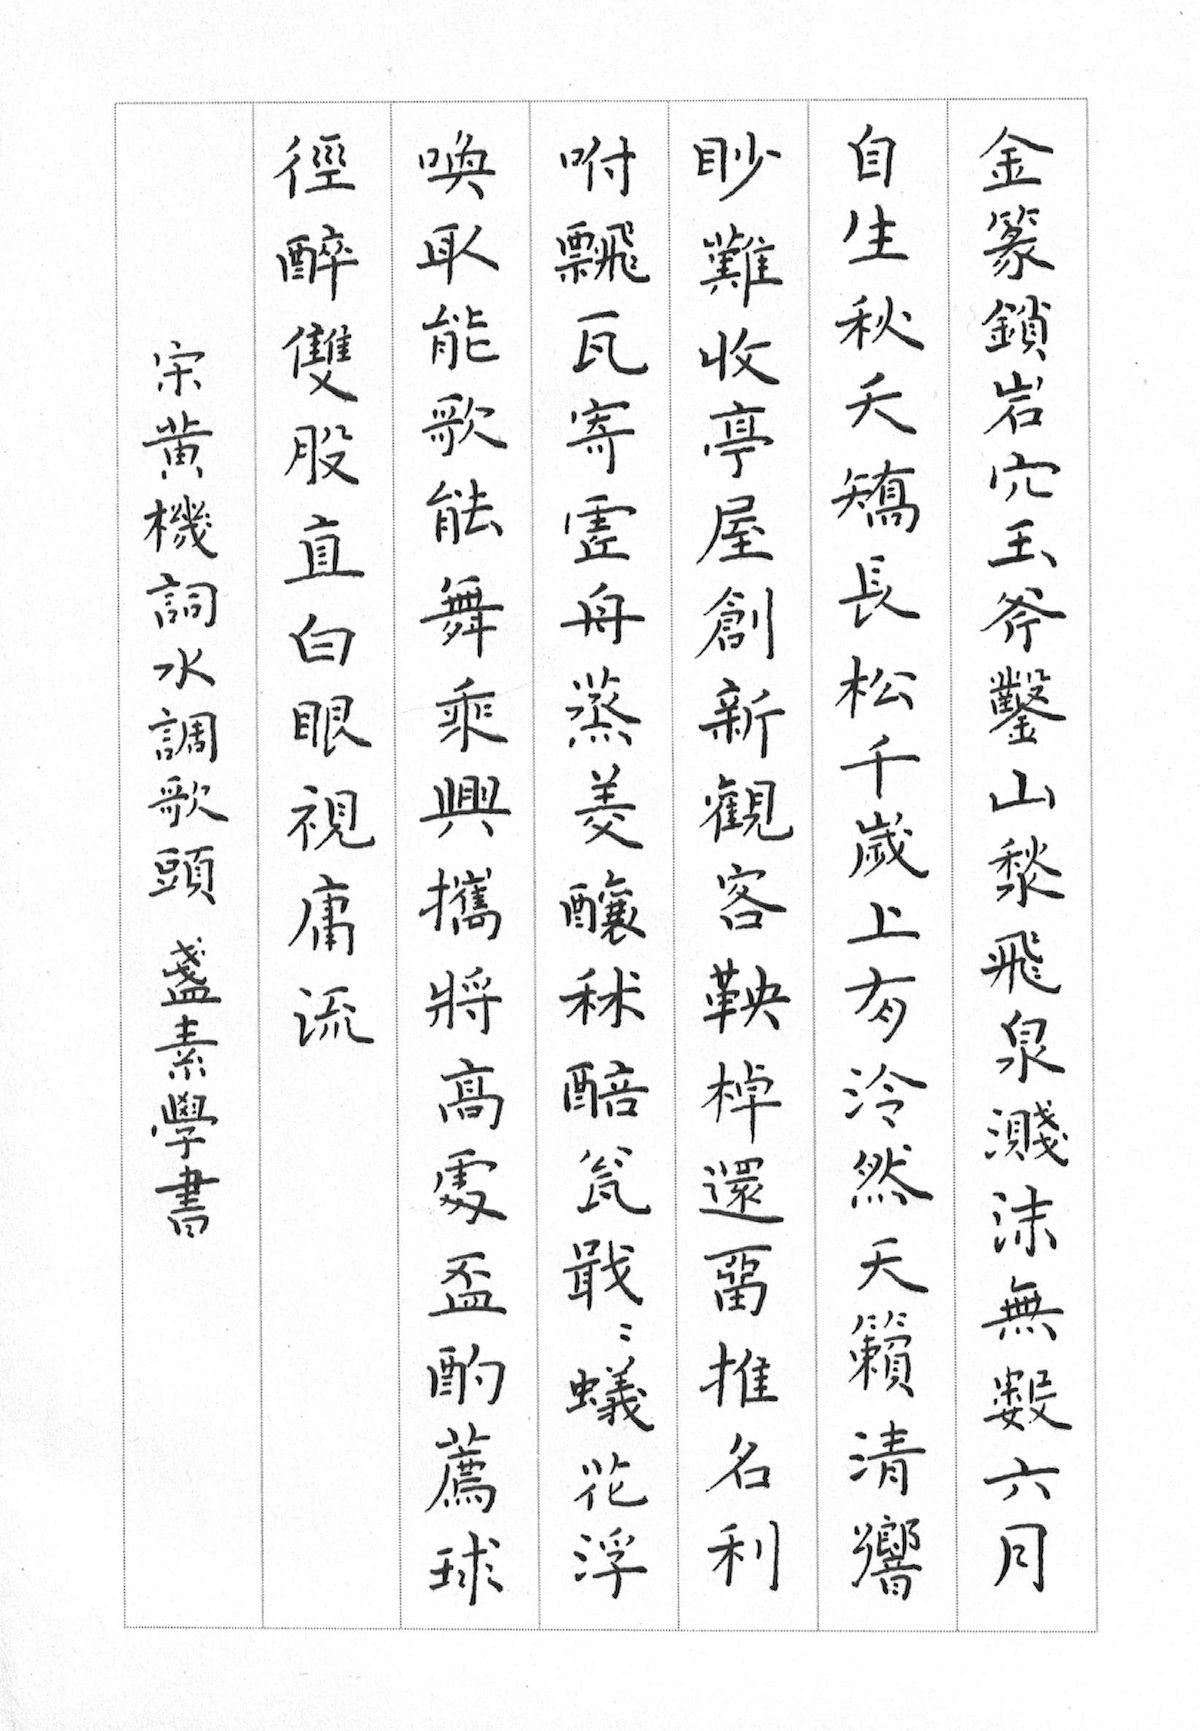 金篆鎖岩穴玉斧鑿山湫飛泉濺沫無數六月
自生秋夭矯長松千歲上有泠然天籟清響
眇難收亭屋創新觀客鞅棹還留推名利
咐飄瓦寄虛舟蒸羑釀秫醅瓮戢〻蟻花浮
喚取能歌能舞乘興攜將高處盃酌薦球
徑醉雙股直白眼視庸流
宋黃機詞水調歌頭 盞素學書